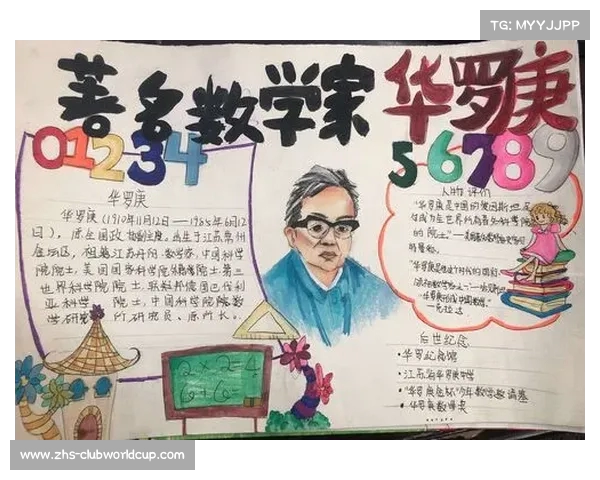 TG: MYYJJPP
著名数学家 华罗庚
01234
56789
华罗庚
华罗庚(1910年11月12日—1985年6月12
日),原全国政协副主席。出生于江苏常州
金坛区,祖籍江苏丹阳。数学家,中国科学
院院士,美国国家科学院外籍院士,第三
世界科学院院士,联邦德国巴伐利
亚科学院院士,中国科学院数
学研究所研究员、原所长。
2×2=4
6+6=
人物评价
"华罗庚是中国的爱因斯坦,足
够成为全世界所有著名科学院
的院士。"
后世纪念
·华罗庚纪念馆
·江苏省华罗庚中学
·"华罗庚金杯"少年数学邀请赛
·华罗庚数学奖
www.zhs-clubworldcup.com